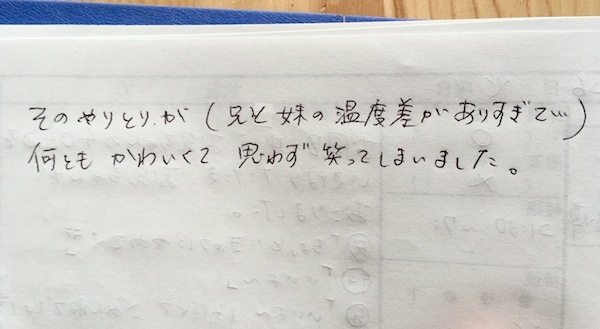 そのやりとりが(兄と妹の温度差がありすぎて…)
何ともかわいくて思わず笑ってしまいました。